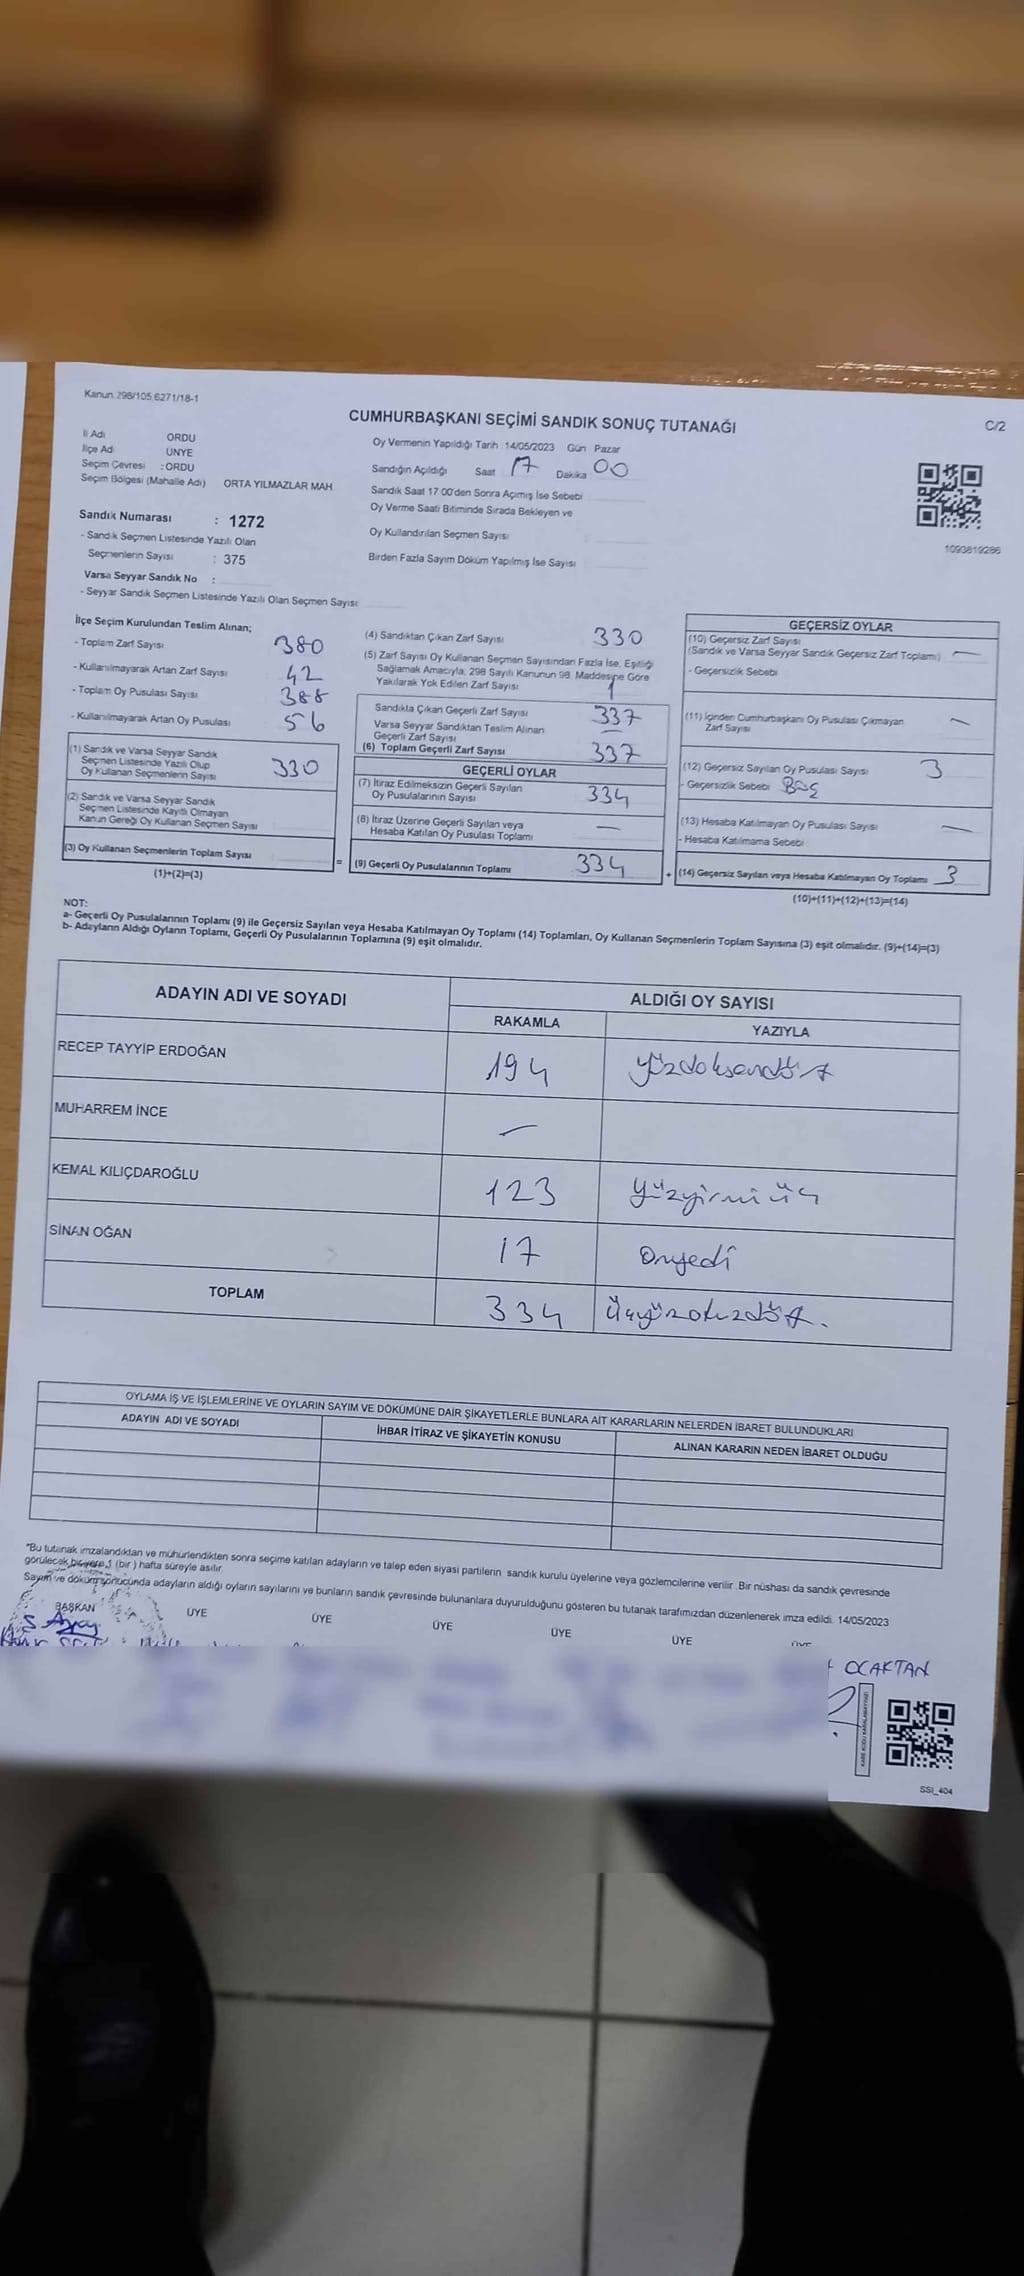 Kanun 298/105,6271/18-1
CUMHURBAŞKANI SEÇİMİ SANDIK SONUÇ TUTANAĞI
C/2
İl Adı ORDU
İlçe Adı ÜNYE
Seçim Çevresi : ORDU
Seçim Bölgesi (Mahalle Adı) ORTA YILMAZLAR MAH.
Oy Vermenin Yapıldığı Tarih : 14/05/2023 Gün Pazar
Sandığın Açıldığı Saat 17 Dakika 00
Sandık Saat 17:00'den Sonra Açımış İse Sebebi
Oy Verme Saati Bitiminde Sırada Bekleyen ve
Oy Kullandırılan Seçmen Sayısı
Birden Fazla Sayım Döküm Yapılmış İse Sayısı
1093819286
Sandık Numarası : 1272
- Sandık Seçmen Listesinde Yazılı Olan
Seçmenlerin Sayısı : 375
Varsa Seyyar Sandık No :
- Seyyar Sandık Seçmen Listesinde Yazılı Olan Seçmen Sayısı
İlçe Seçim Kurulundan Teslim Alınan;
- Toplam Zarf Sayısı 380
- Kullanılmayarak Artan Zarf Sayısı 42
- Toplam Oy Pusulası Sayısı 388
- Kullanılmayarak Artan Oy Pusulası 56
(1) Sandık ve Varsa Seyyar Sandık
Seçmen Listesinde Yazılı Olup
Oy Kullanan Seçmenlerin Sayısı 330
(2) Sandık ve Varsa Seyyar Sandık
Seçmen Listesinde Kayıtlı Olmayan
Kanun Gereği Oy Kullanan Seçmen Sayısı
(3) Oy Kullanan Seçmenlerin Toplam Sayısı
(1)+(2)=(3)
(4) Sandıktan Çıkan Zarf Sayısı 330
(5) Zarf Sayısı Oy Kullanan Seçmen Sayısından Fazla İse, Eşitliği
Sağlamak Amacıyla, 298 Sayılı Kanunun 98. Maddesine Göre
Yakılarak Yok Edilen Zarf Sayısı 1
Sandıkta Çıkan Geçerli Zarf Sayısı 337
Varsa Seyyar Sandıktan Teslim Alınan
Geçerli Zarf Sayısı —
(6) Toplam Geçerli Zarf Sayısı 337
GEÇERLİ OYLAR
(7) İtiraz Edilmeksizin Geçerli Sayılan
Oy Pusulalarının Sayısı 334
(8) İtiraz Üzerine Geçerli Sayılan veya
Hesaba Katılan Oy Pusulası Toplamı —
= (9) Geçerli Oy Pusulalarının Toplamı 334
GEÇERSİZ OYLAR
(10) Geçersiz Zarf Sayısı
(Sandık ve Varsa Seyyar Sandık Geçersiz Zarf Toplamı) —
- Geçersizlik Sebebi
(11) İçinden Cumhurbaşkanı Oy Pusulası Çıkmayan
Zarf Sayısı —
(12) Geçersiz Sayılan Oy Pusulası Sayısı 3
- Geçersizlik Sebebi Boş
(13) Hesaba Katılmayan Oy Pusulası Sayısı —
- Hesaba Katılmama Sebebi
+ (14) Geçersiz Sayılan veya Hesaba Katılmayan Oy Toplamı 3
(10)+(11)+(12)+(13)=(14)
NOT:
a- Geçerli Oy Pusulalarının Toplamı (9) ile Geçersiz Sayılan veya Hesaba Katılmayan Oy Toplamı (14) Toplamları, Oy Kullanan Seçmenlerin Toplam Sayısına (3) eşit olmalıdır. (9)+(14)=(3)
b- Adayların Aldığı Oyların Toplamı, Geçerli Oy Pusulalarının Toplamına (9) eşit olmalıdır.
ADAYIN ADI VE SOYADI
ALDIĞI OY SAYISI
RAKAMLA YAZIYLA
RECEP TAYYİP ERDOĞAN 194 yüzdoksandört
MUHARREM İNCE —
KEMAL KILIÇDAROĞLU 123 yüzyirmiüç
SİNAN OĞAN 17 onyedi
TOPLAM 334 üçyüzotuzdört.
OYLAMA İŞ VE İŞLEMLERİNE VE OYLARIN SAYIM VE DÖKÜMÜNE DAİR ŞİKAYETLERLE BUNLARA AİT KARARLARIN NELERDEN İBARET BULUNDUKLARI
ADAYIN ADI VE SOYADI İHBAR İTİRAZ VE ŞİKAYETİN KONUSU ALINAN KARARIN NEDEN İBARET OLDUĞU
*Bu tutanak imzalandıktan ve mühürlendikten sonra seçime katılan adayların ve talep eden siyasi partilerin sandık kurulu üyelerine veya gözlemcilerine verilir. Bir nüshası da sandık çevresinde
görülecek bir yere 1 (bir ) hafta süreyle asılır.
Sayım ve döküm sonucunda adayların aldığı oyların sayılarını ve bunların sandık çevresinde bulunanlara duyurulduğunu gösteren bu tutanak tarafımızdan düzenlenerek imza edildi. 14/05/2023
BAŞKAN ÜYE ÜYE ÜYE ÜYE ÜYE ÜYE
OCAKTAN
SSI_404